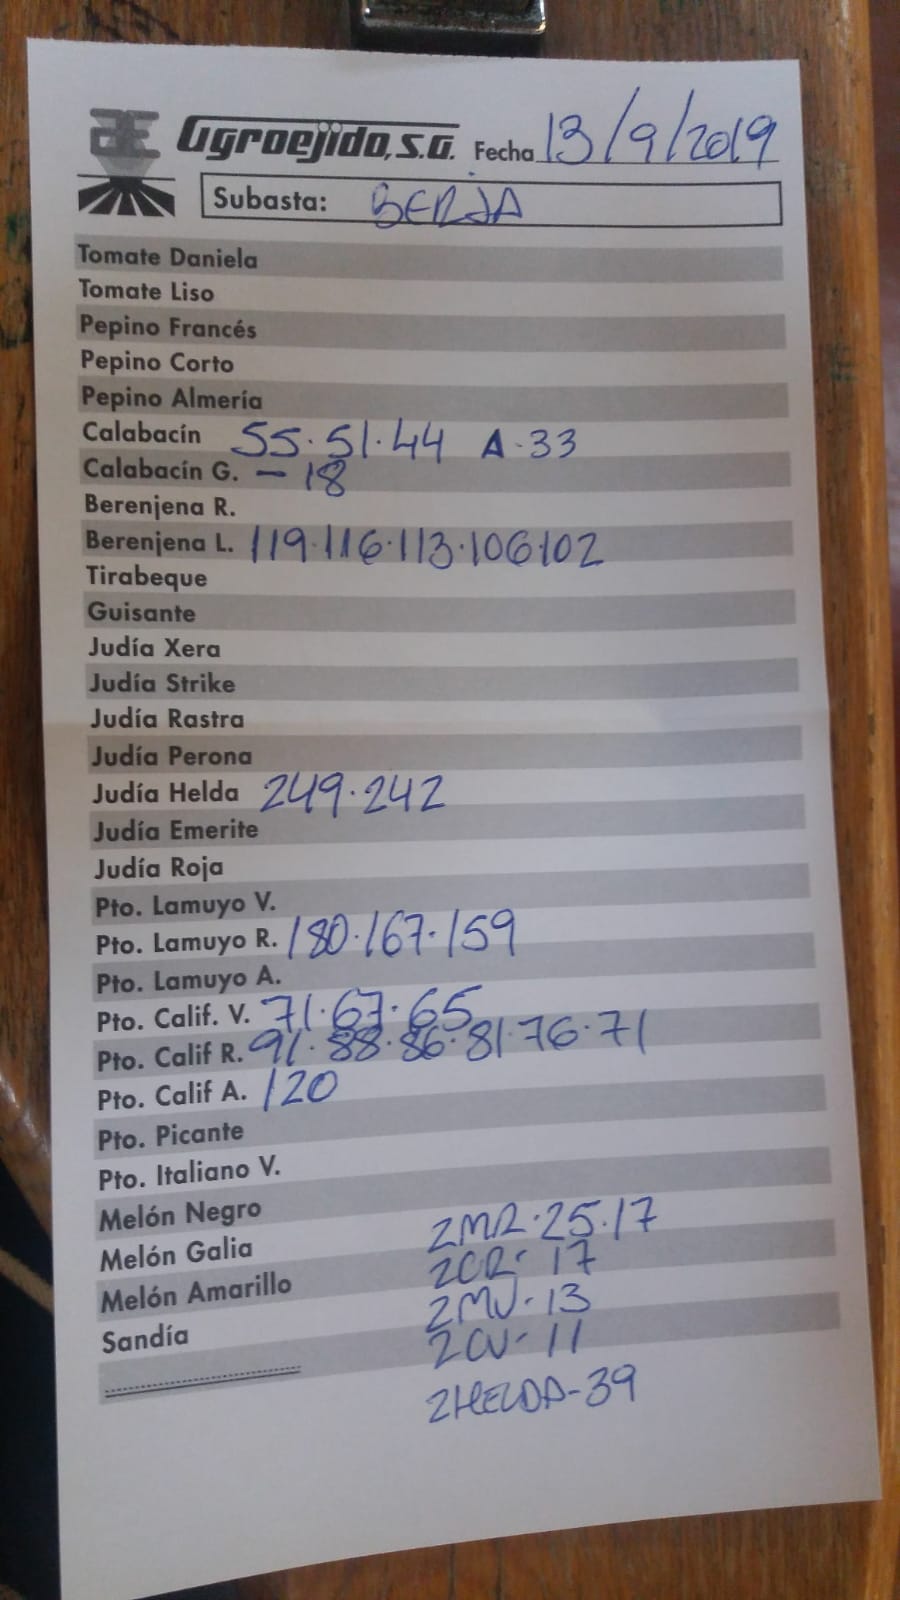 Agroejido, S.A. Fecha 13/9/2019
Subasta: BERJA
Tomate Daniela
Tomate Liso
Pepino Francés
Pepino Corto
Pepino Almería
Calabacín 55·51·44 A·33
Calabacín G. - 18
Berenjena R.
Berenjena L. 119·116·113·106·102
Tirabeque
Guisante
Judía Xera
Judía Strike
Judía Rastra
Judía Perona
Judía Helda 249·242
Judía Emerite
Judía Roja
Pto. Lamuyo V.
Pto. Lamuyo R. 180·167·159
Pto. Lamuyo A.
Pto. Calif. V. 71·67·65
Pto. Calif R. 91·88·86·81·76·71
Pto. Calif A. 120
Pto. Picante
Pto. Italiano V.
Melón Negro
Melón Galia 2MR·25·17
Melón Amarillo 2CR· 17
Sandía 2MV· 13
2CV· 11
2HELDA-39